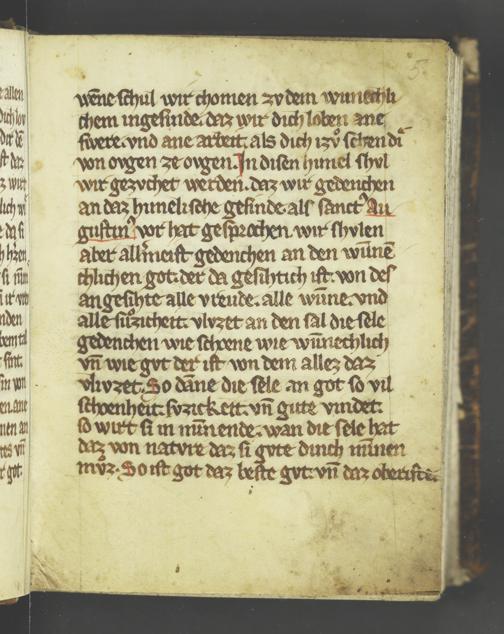 5
wēne schul wir chomen zv dem wunechli
chem ingesinde. daz wir dich loben ane
swere. vnd ane arbeit. als dich izv̊ sehen di
von ovgen ze ovgen. In disen himel shvl
wir gezvchet werden. daz wir gedenchen
an daz himelische gesinde. als sanctꝰ Au
gustinꝰ vor hat gesprochen. wir shvlen
aber allermeist gedenchen an den wūne
chlichen got. der da gesihtich ist. von des
angesihte alle vreude. alle wūne. vnd
alle sůzicheit. vlvzet an den sal die sele
gedenchen wie schoene wie wūnechlich
vn̄ wie gvt der ist von dem allez daz
vlivzet. So dāne die sele an got so vil
schoenheit. svzickeit. vn̄ gute vindet.
so wirt si in minnende. wan die sele hat
daz von natvre daz si gvte dinch minnen
mv̊z. So ist got daz beste gvt. vn̄ daz oberiste.